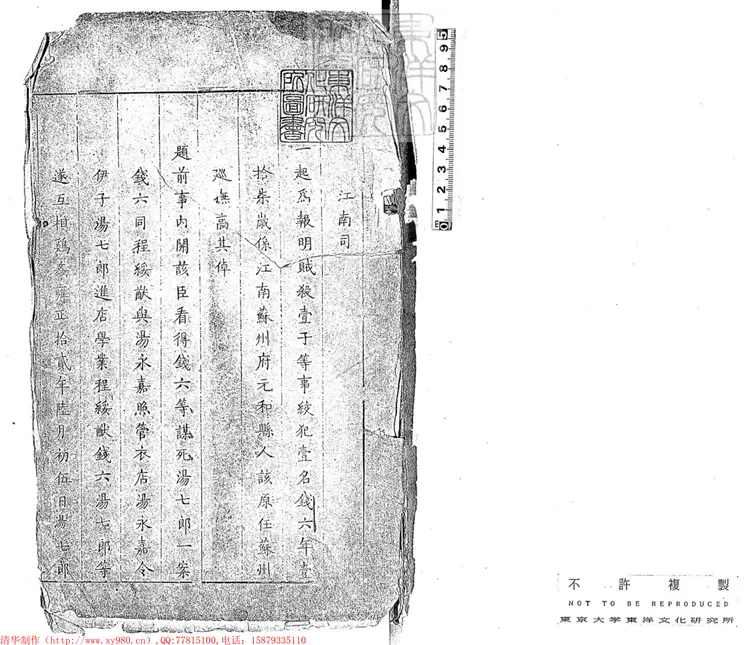 江南司
一起爲報明賊殺壹子等事絞犯壹名錢六年壹
拾柒歲係江南蘇州府元和縣人該原任蘇州
巡撫高其倬
題前事內開該臣看得錢六等謀死湯七郎一案
錢六同程綏猷與湯永嘉照管衣店湯永嘉令
伊子湯七郎進店學業程綏猷錢六湯七郎等
遂互相雞姦雍正拾貳年陸月初伍日湯七郎
東洋文
化研究
所圖書
不許複製
NOT TO BE REPRODUCED
東京大学東洋文化研究所
清华制作（http://www.xy980.cn）,QQ:77815100,电话：15879335110